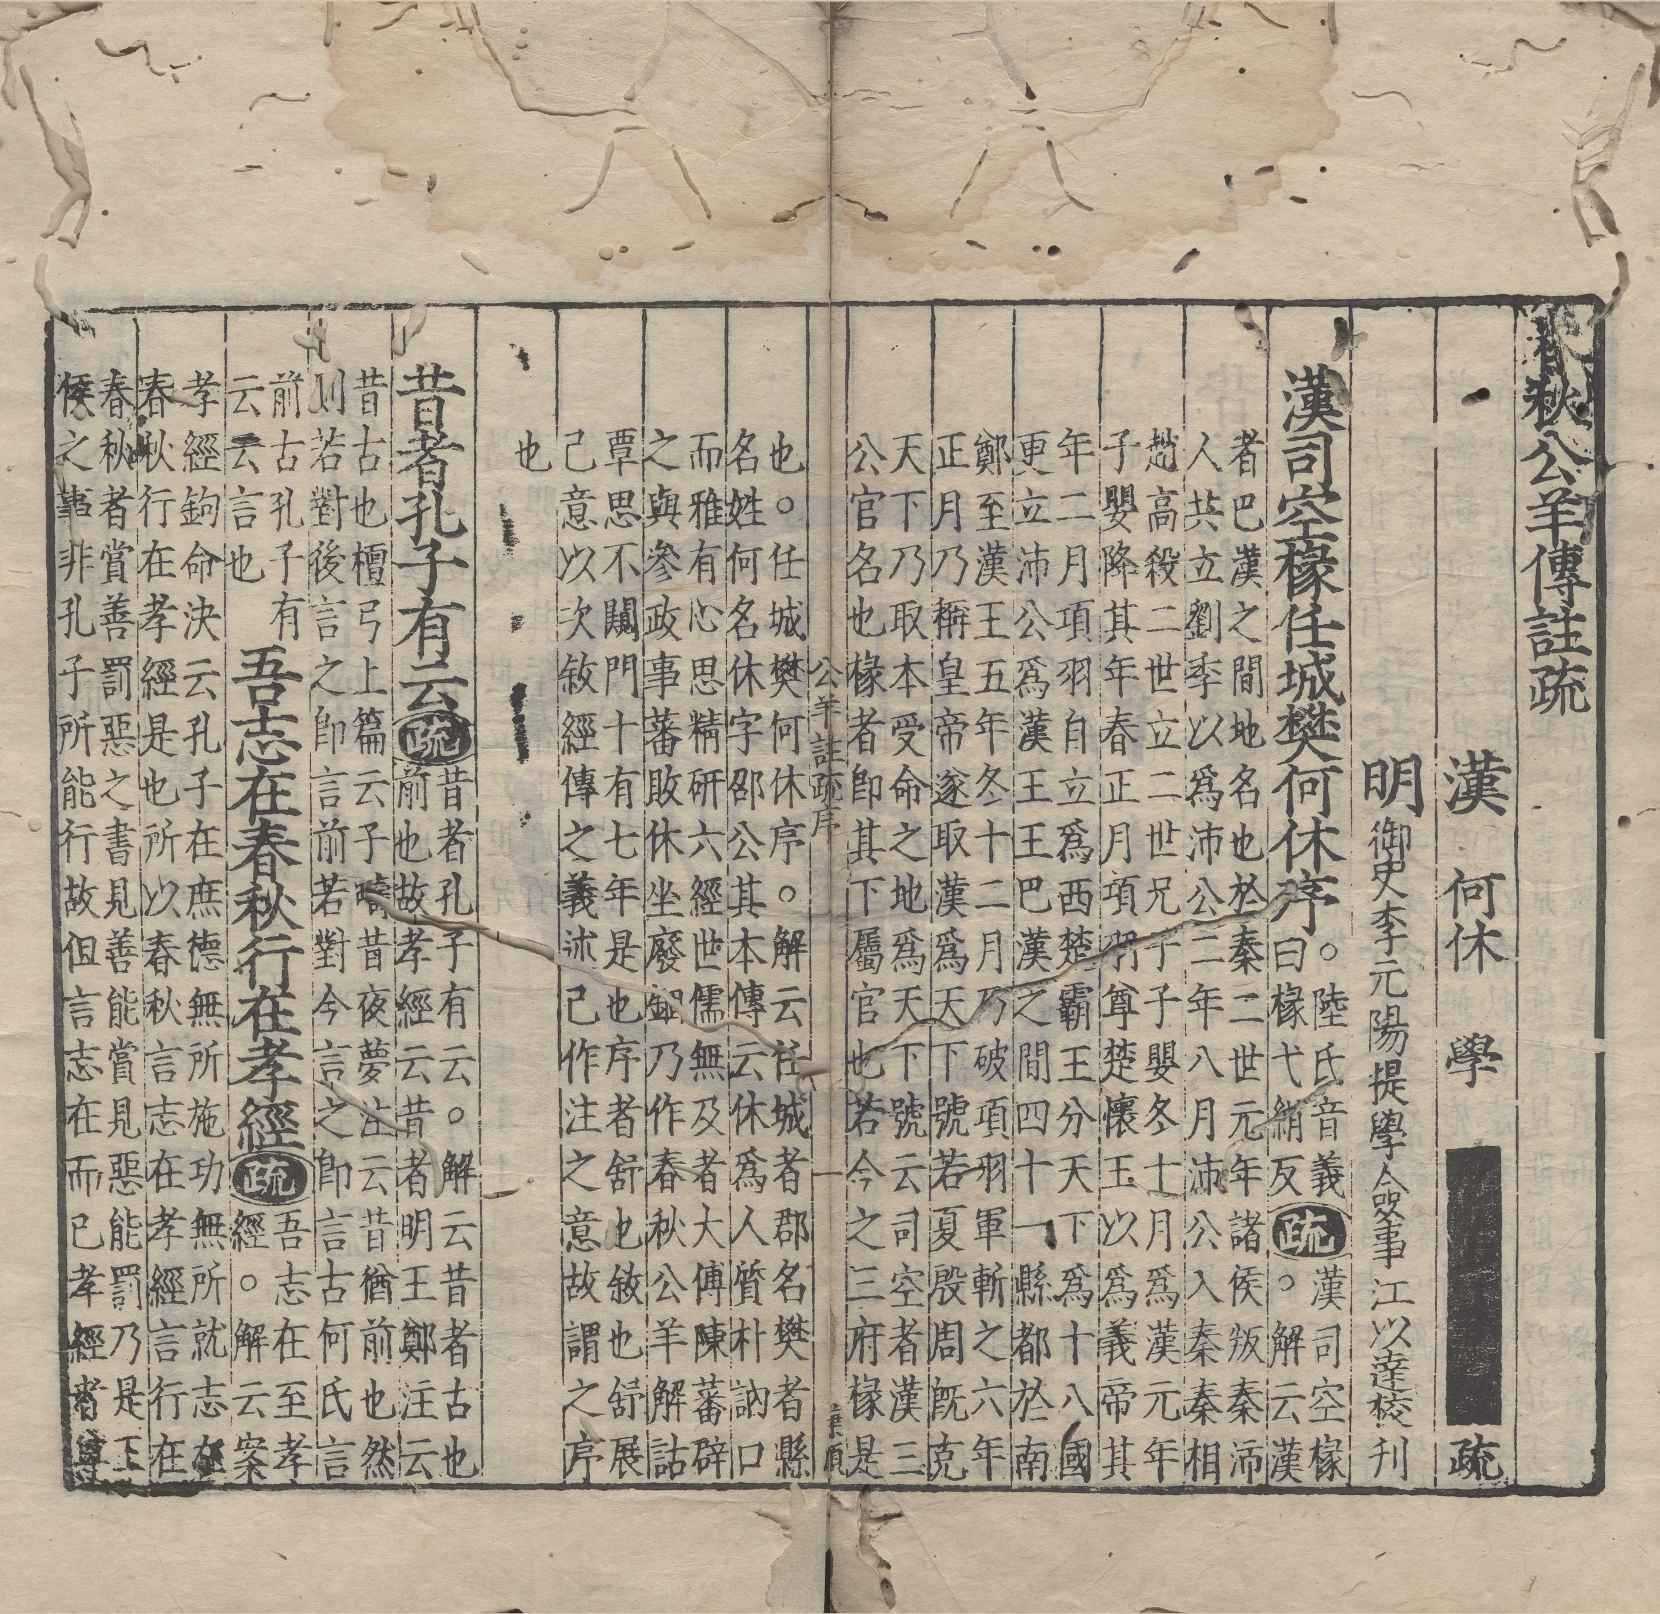 春秋公羊傳註疏
漢 何休 學 疏
明御史李元陽提學僉事江以達校刊
漢司空椽任城樊何休序
。陸氏音義
曰椽弋絹反
疏
漢司空椽
。解云漢
者巴漢之間地名也於秦二世元年諸侯叛秦沛
人共立劉季以爲沛公二年八月沛公入秦秦相
趙高殺二世立二世兄子子嬰冬十月爲漢元年
子嬰降其年春正月項羽尊楚懷王以爲義帝其
年二月項羽自立爲西楚霸王分天下爲十八國
更立沛公爲漢王王巴漢之間四十一縣都於南
鄭至漢王五年冬十二月乃破項羽軍斬之六年
正月乃稱皇帝遂取漢爲天下號若夏殷周既克
天下乃取本受命之地爲天下號云司空者漢三
公官名也椽者卽其下屬官也若今之三府椽是
公羊註疏序
也。任城樊何休序。解云任城者郡名樊者縣
名姓何名休字邵公其本傳云休爲人質朴訥口
而雅有心思精研六經世儒無及者大傅陳蕃辟
之與參政事蕃敗休坐廢錮乃作春秋公羊解詁
覃思不闚門十有七年是也序者舒也敘也舒展
己意以次敘經傳之義述己作注之意故謂之序
也
昔者孔子有云
疏
昔者孔子有云。解云昔者古也
前也故孝經云昔者明王鄭注云
昔古也檀弓上篇云子疇昔夜夢注云昔猶前也然
則若對後言之卽言前若對今言之卽言古何氏言
前古孔子有
云云言也
吾志在春秋行在孝經
疏
吾志在至孝
經。解云案
孝經鉤命決云孔子在庶德無所施功無所就志在
春秋行在孝經是也所以春秋言志在孝經言行在
春秋者賞善罰惡之書見善能賞見惡能罰乃是王
侯之事非孔子所能行故但言志在而已孝經者尊